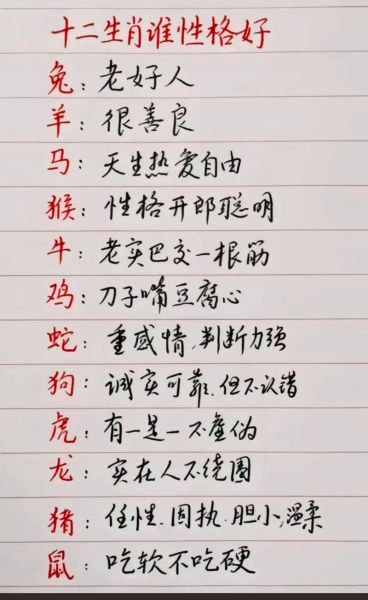 十二生肖谁性格好
兔：老好人
羊：很善良
马：天生热爱自由
猴：性格开郎聪明
牛：老实巴交一根筋
鸡：刀子嘴豆腐心
蛇：重感情,判断力强
狗：诚实可靠.但不认错
虎：有一是一不虚伪
龙：实在人不绕圈
猪：任性.固执.胆小,温柔
鼠：吃软不吃硬